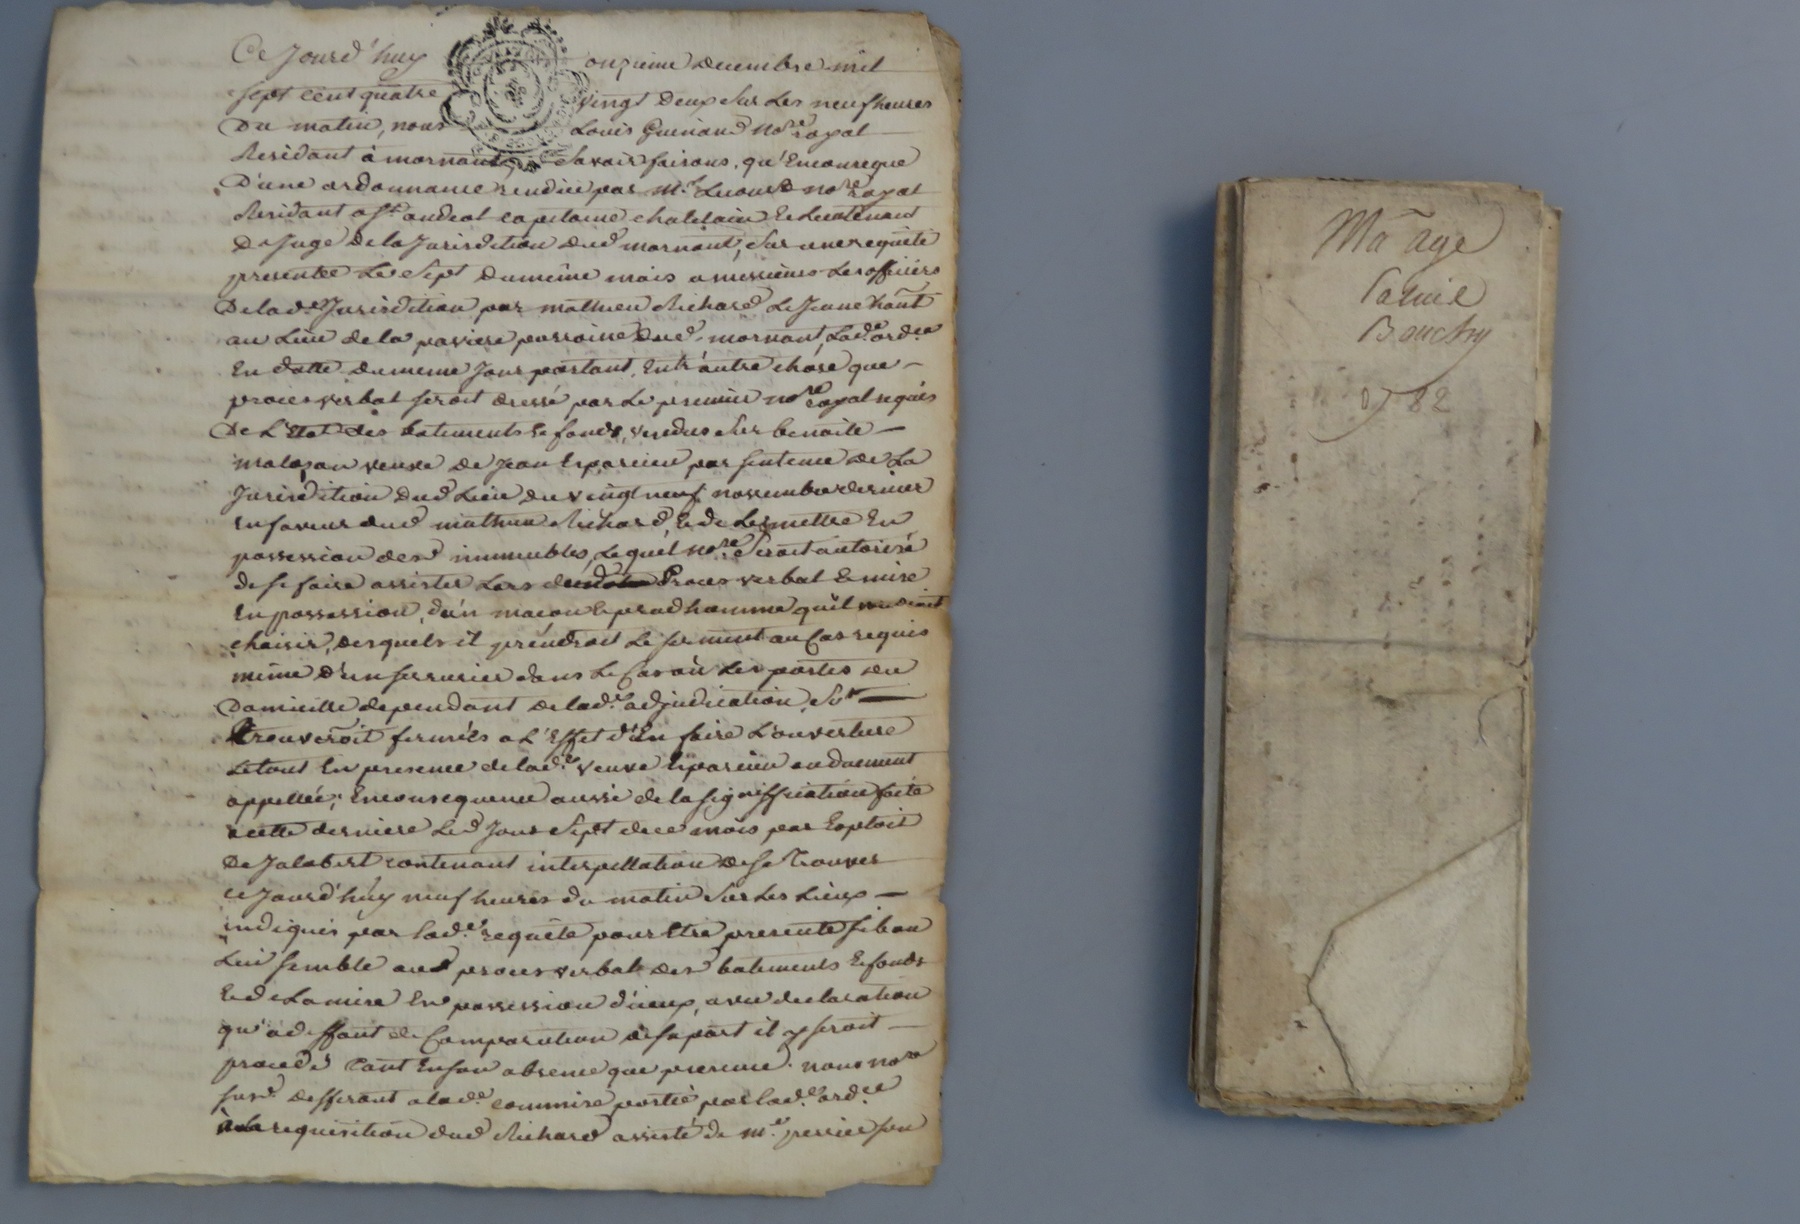 Ce Jourd'huy onzieme decembre mil
sept cent quatre vingt deux sur les neuf heures
Du matin, nous Louis Guinand no.re royal
Residant à mornant, savoir faisons, qu'En consequence
D'une ordonnance rendüe par m.e no.re royal
Residant a st. andeol capitaine chatelain & Lieutenant
De Juge de la Jurisdition dud mornant, sur une requête
presentée le sept du même mois a messieurs les officiers
De lad.e Jurisdition par mathieu Richard le Jeune
au Lieu de la paroisse dud. mornant, Lad.e ord.ce
En datte du meme Jour portant, Entr'autre chose que
procès verbal seroit dressé par le premier no.re royal requis
De L'Etat des batiments & fonds, vendus sur benoite
veuve de Jean par sentence de La
Jurisdition dud Lieu du vingt neuf novembre dernier
En faveur dud mathieu Richard, & de Le mettre En
possession desd immeubles, Lequel no.re seroit autorisé
de se faire assister Lors dud Procès verbal & mise
En possession, d'un maçon & prud homme qu'il voudroit
choisir, desquels il prendroit Le serment au Cas requis
même d'un serrurier dans Le Cas où Les portes du
Domicille dependant de lad.e adjudication, se
trouveroit fermées a L'Effet d'En faire L'ouverture
Le tout En presence de lad.e veuve ou duement
appellée; En consequence aussi de la signiffication faite
a cette derniere Led Jour sept de ce mois par Exploit
De Jalabert contenant interpellation de se Trouver
ce Jourd'huy neuf heures du matin sur Les Lieux
indiqués par Lad.e requête pour Etre presente si bon
Lui semble aud procès verbal desd batiments & fonds
& de La mise En possession d'iceux, avec declaration
qu'a deffaut de Comparution de sa part il y seroit
procedé tant En son absence que presence. nous no.re
susd. defferant a lad.e commise portée par Lad.e ord.ce
à la requisition dud Richard assisté de m.e perrier son
Ma age
Bouchy
1782